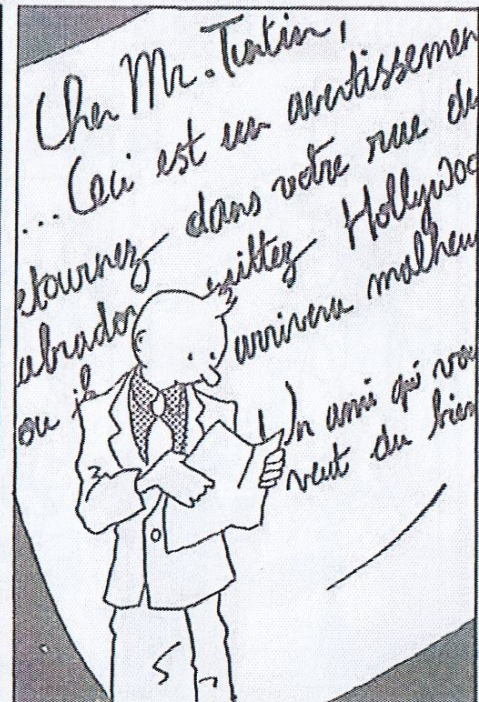 Cher Mr. Tintin,
... Ceci est un avertissemen
etournez dans votre rue du
abrador uittez Hollywoo
ou il arrivera malheu
Un ami qui vou
veut du bien